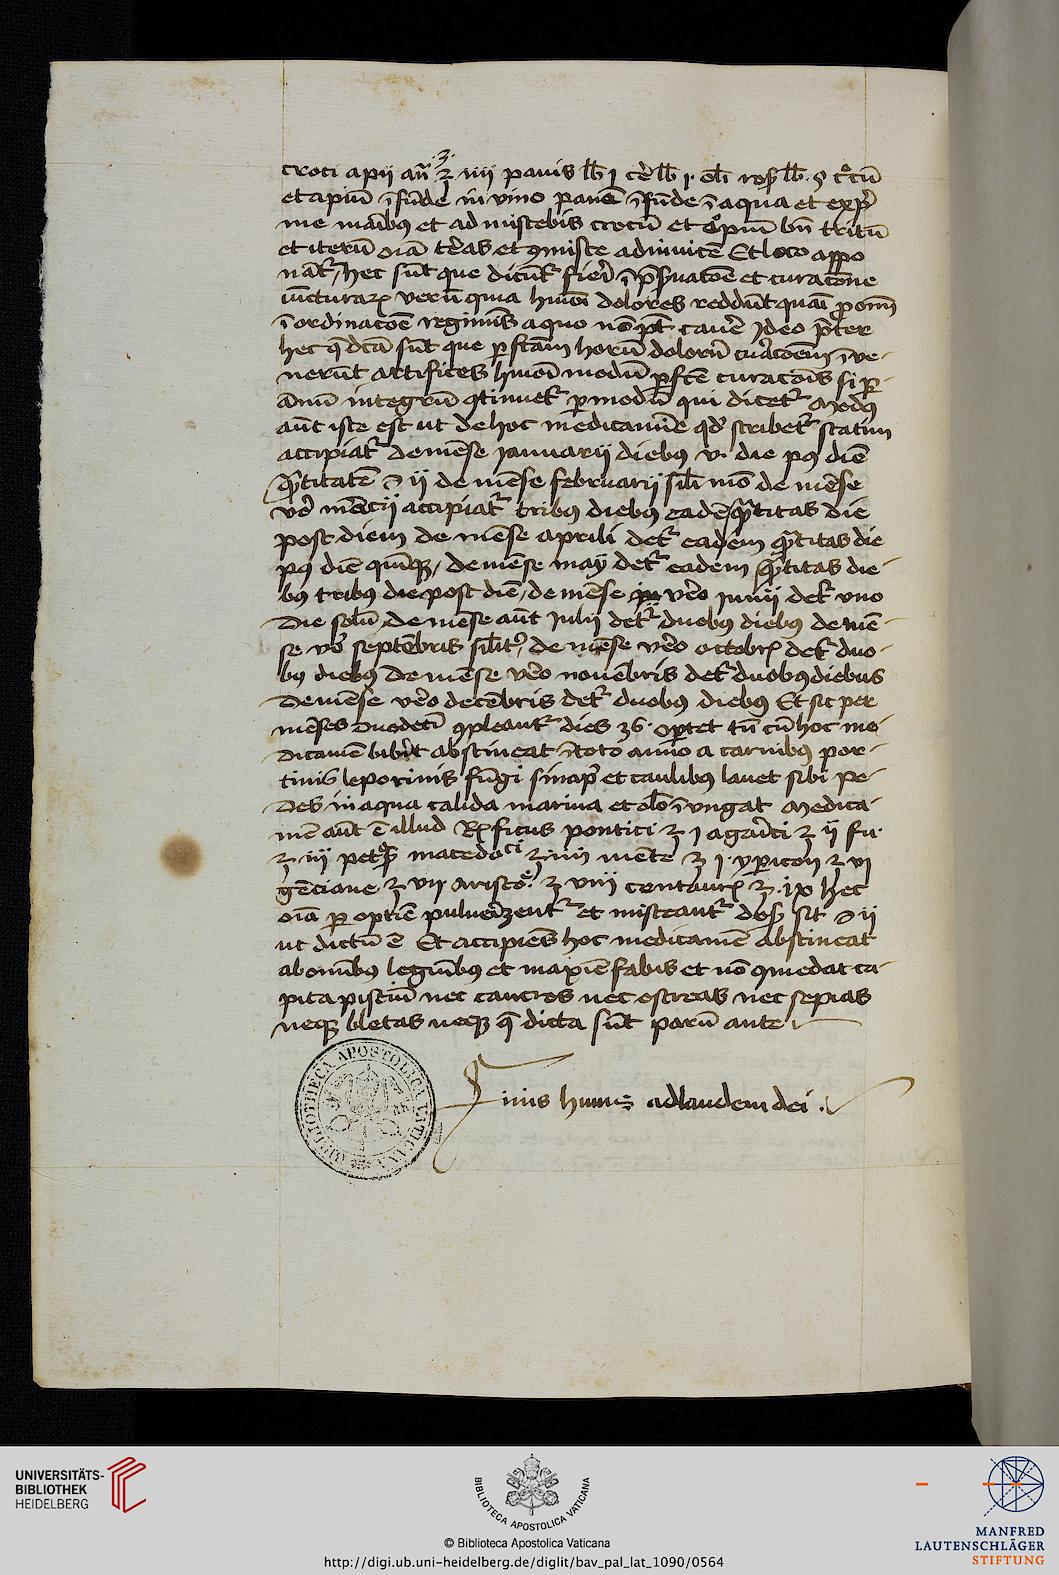 croci apij añ ʒ iiij panis lb̄ j cēlb̄ j. oli ros̄ lb̄. s̄ crocū
et apiū īfūde in vino panē īfūde ī aqua et expͥ
me manibꝰ et admiscebis crocū et opiū bn̄ tritū
et iterū oīa terās et ꝯmisce adinuicē Et loco appo
nāt᷑ hec sūt que dicūt᷑ fieri ī p̄seruatōe et curatōne
iūcturaꝝ verū quia hmōi dolores reddūt quaī ꝓ om̄i
īordinatōe regimīs a quo nō pt̄ cauē Ideo p̄ter
hec q̄ dcā sūt que ꝑ fctām horū dolorū curatōem īve-
nerūt artifices hmōi modū ꝑfctē curatōis si ꝑ-
annū integrū ꝯtinuet᷑ ꝑ modū qui dicet᷑ Modꝰ
aūt iste est ut de hoc medicamīe qd̓ scribet᷑ statim
accipiat᷑ de mēse Januarij diebꝰ v. die pꝰ diē
q̄ntitatē ʒ ij de mēse februarij sīli mō de mēse
vͦo mārcij accipiat᷑ tribꝰ diebꝰ eadē q̄ntitas die
post diem de mēse aprili det᷑ eadem q̄ntitas die
pꝰ diē quīqꝫ, de mēse maÿ det᷑ eadem q̄ntitas die-
bꝰ tribꝰ die post diē, de mēse vēo Junij det᷑ vno
die solū, de mēse aūt Julij det᷑ duobꝰ diebꝰ de mē-
se vͦo septēbris silit᷑, de mēse vēo octobrꝭ det᷑ duo-
bꝰ diebꝰ De mēse vēo nouēbris det᷑ duobꝰ diebus
De mēse vēo decēbris det᷑ duobꝰ diebꝰ Et sic per
mēses duodecī ꝯpleant᷑ dies 36. oꝑtet tn̄ cū hoc me-
dicamē bibit abstineat ī toto anno a carnibꝰ por-
cinis leporinis fūgi sinapͥ et caulibꝰ lauet sibi pe-
des in aqua calida marina et olō īvngat Medica-
mē aūt ē illud Rꝝ ficus pontici ʒ j agarīci ʒ ij fu.
ʒ iij petros̄ macedoci ʒ iiij mente ʒ j. yꝑicon ʒ vj
gēciane ʒ vij aristo. ʒ viij centaurꝭ ʒ. ix hec
oīa ꝑ optīe puluerizent᷑ et misceant᷑ dos̄ sit ʒ ij
ut dictū ē Et accipiēs hoc medicamē abstineat
ab omībꝰ legumībꝰ et maxīe fabis et nō ꝯmedat ca-
pita pisciū nec cancros nec ostreas nec sepias
neqꝫ bletas neqꝫ q̄ dicta sūt parū ante
Finis huius ad laudem dei.
BIBLIOTHECA APOSTOLICA VATICANA
UNIVERSITÄTS-
BIBLIOTHEK
HEIDELBERG
BIBLIOTECA APOSTOLICA VATICANA
© Biblioteca Apostolica Vaticana
http://digi.ub.uni-heidelberg.de/diglit/bav_pal_lat_1090/0564
MANFRED
LAUTENSCHLÄGER
STIFTUNG